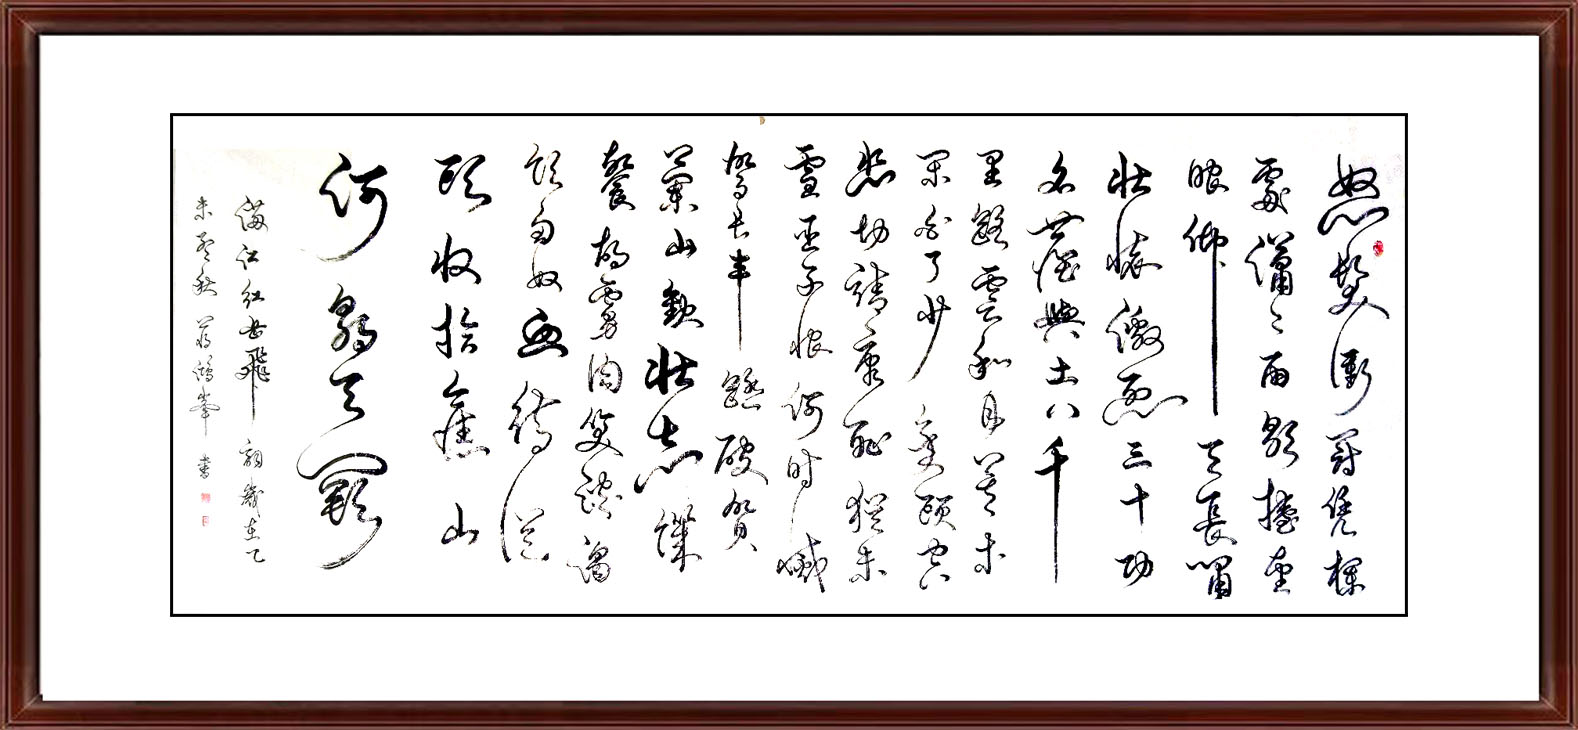 怒髮衝冠凭欄
處瀟〻雨歇擡望
眼仰天長嘯
壯懷激烈三十功
名塵與土八千
里路雲和月莫等
閑白了少年頭空
悲切靖康恥猶未
雪臣子恨何時滅
駕長車踏破賀
蘭山缺壯志饑
餐胡虜肉笑談渴
飲匈奴血待從
頭收拾舊山
河朝天闕
滿江紅岳飛詞歲在乙
未孟秋蔣鴻峯書